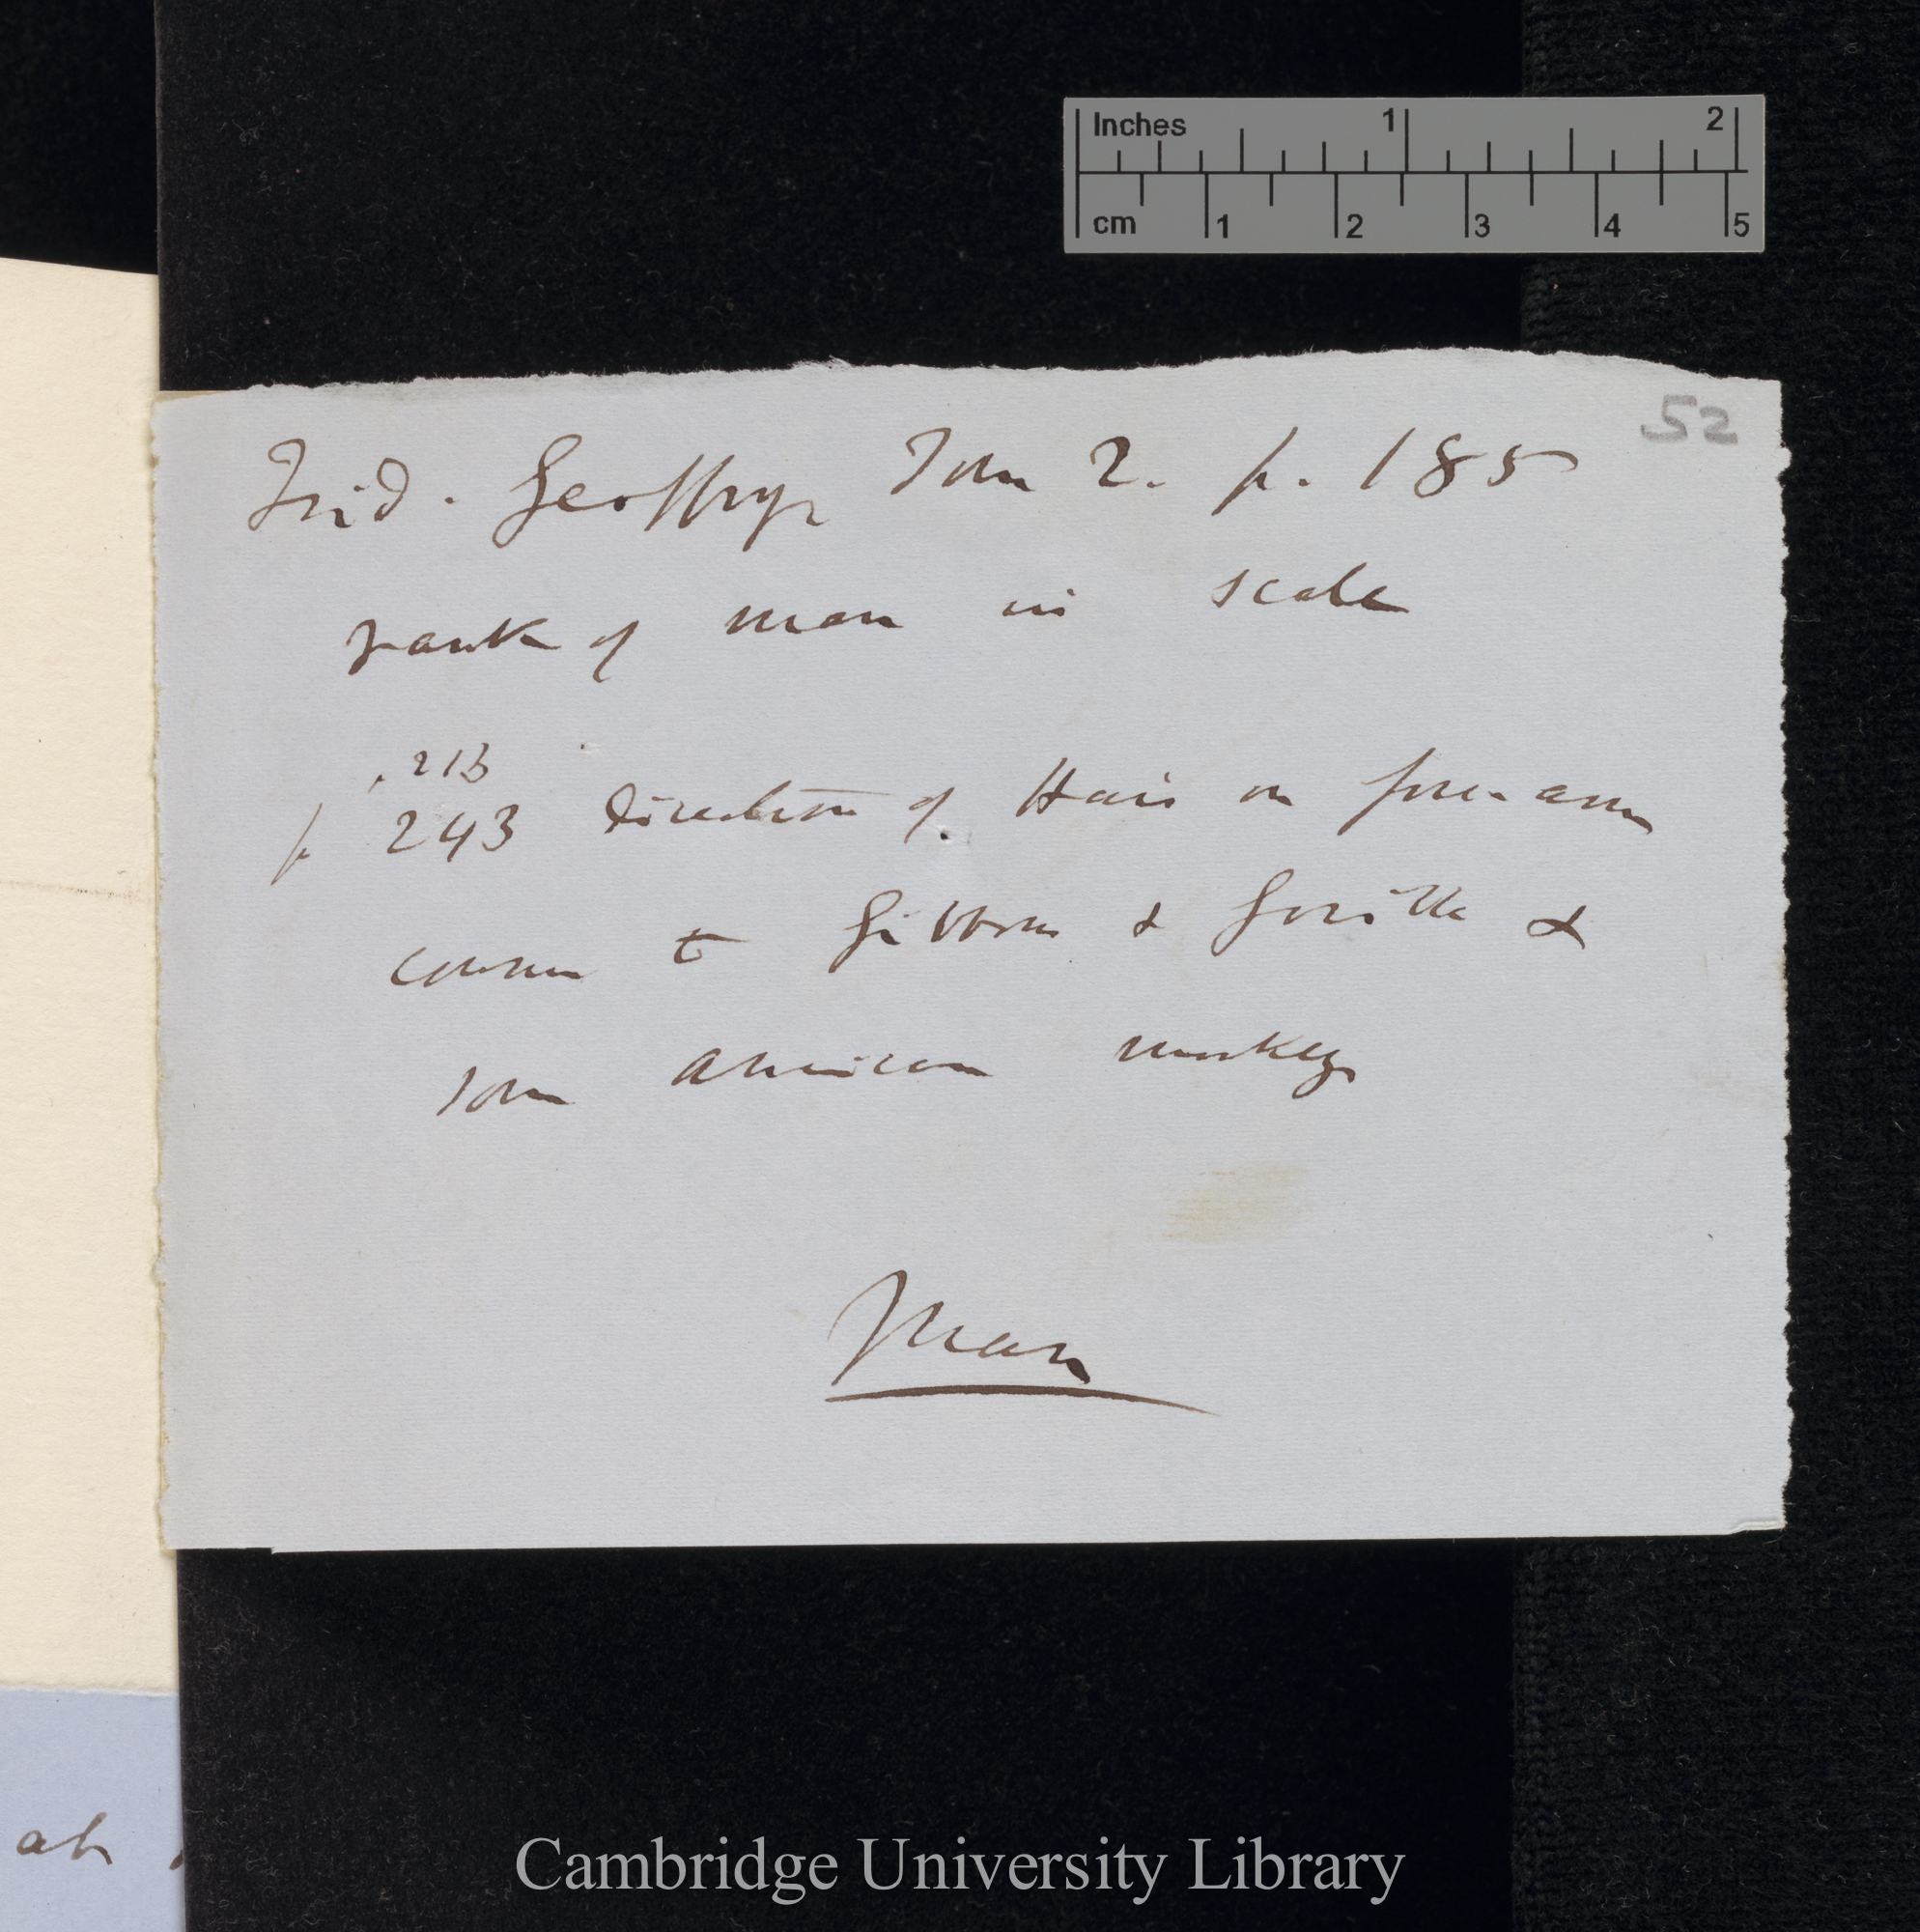 Inches 1 2
cm 1 2 3 4 5
52
Isid. Geoffroy Tom 2. p. 185
rank of man in scale
, 213
p 243 Direction of Hair on fore-arm
common to Gibbons & Gorilla &
some American monkeys
Man
Cambridge University Library
ah